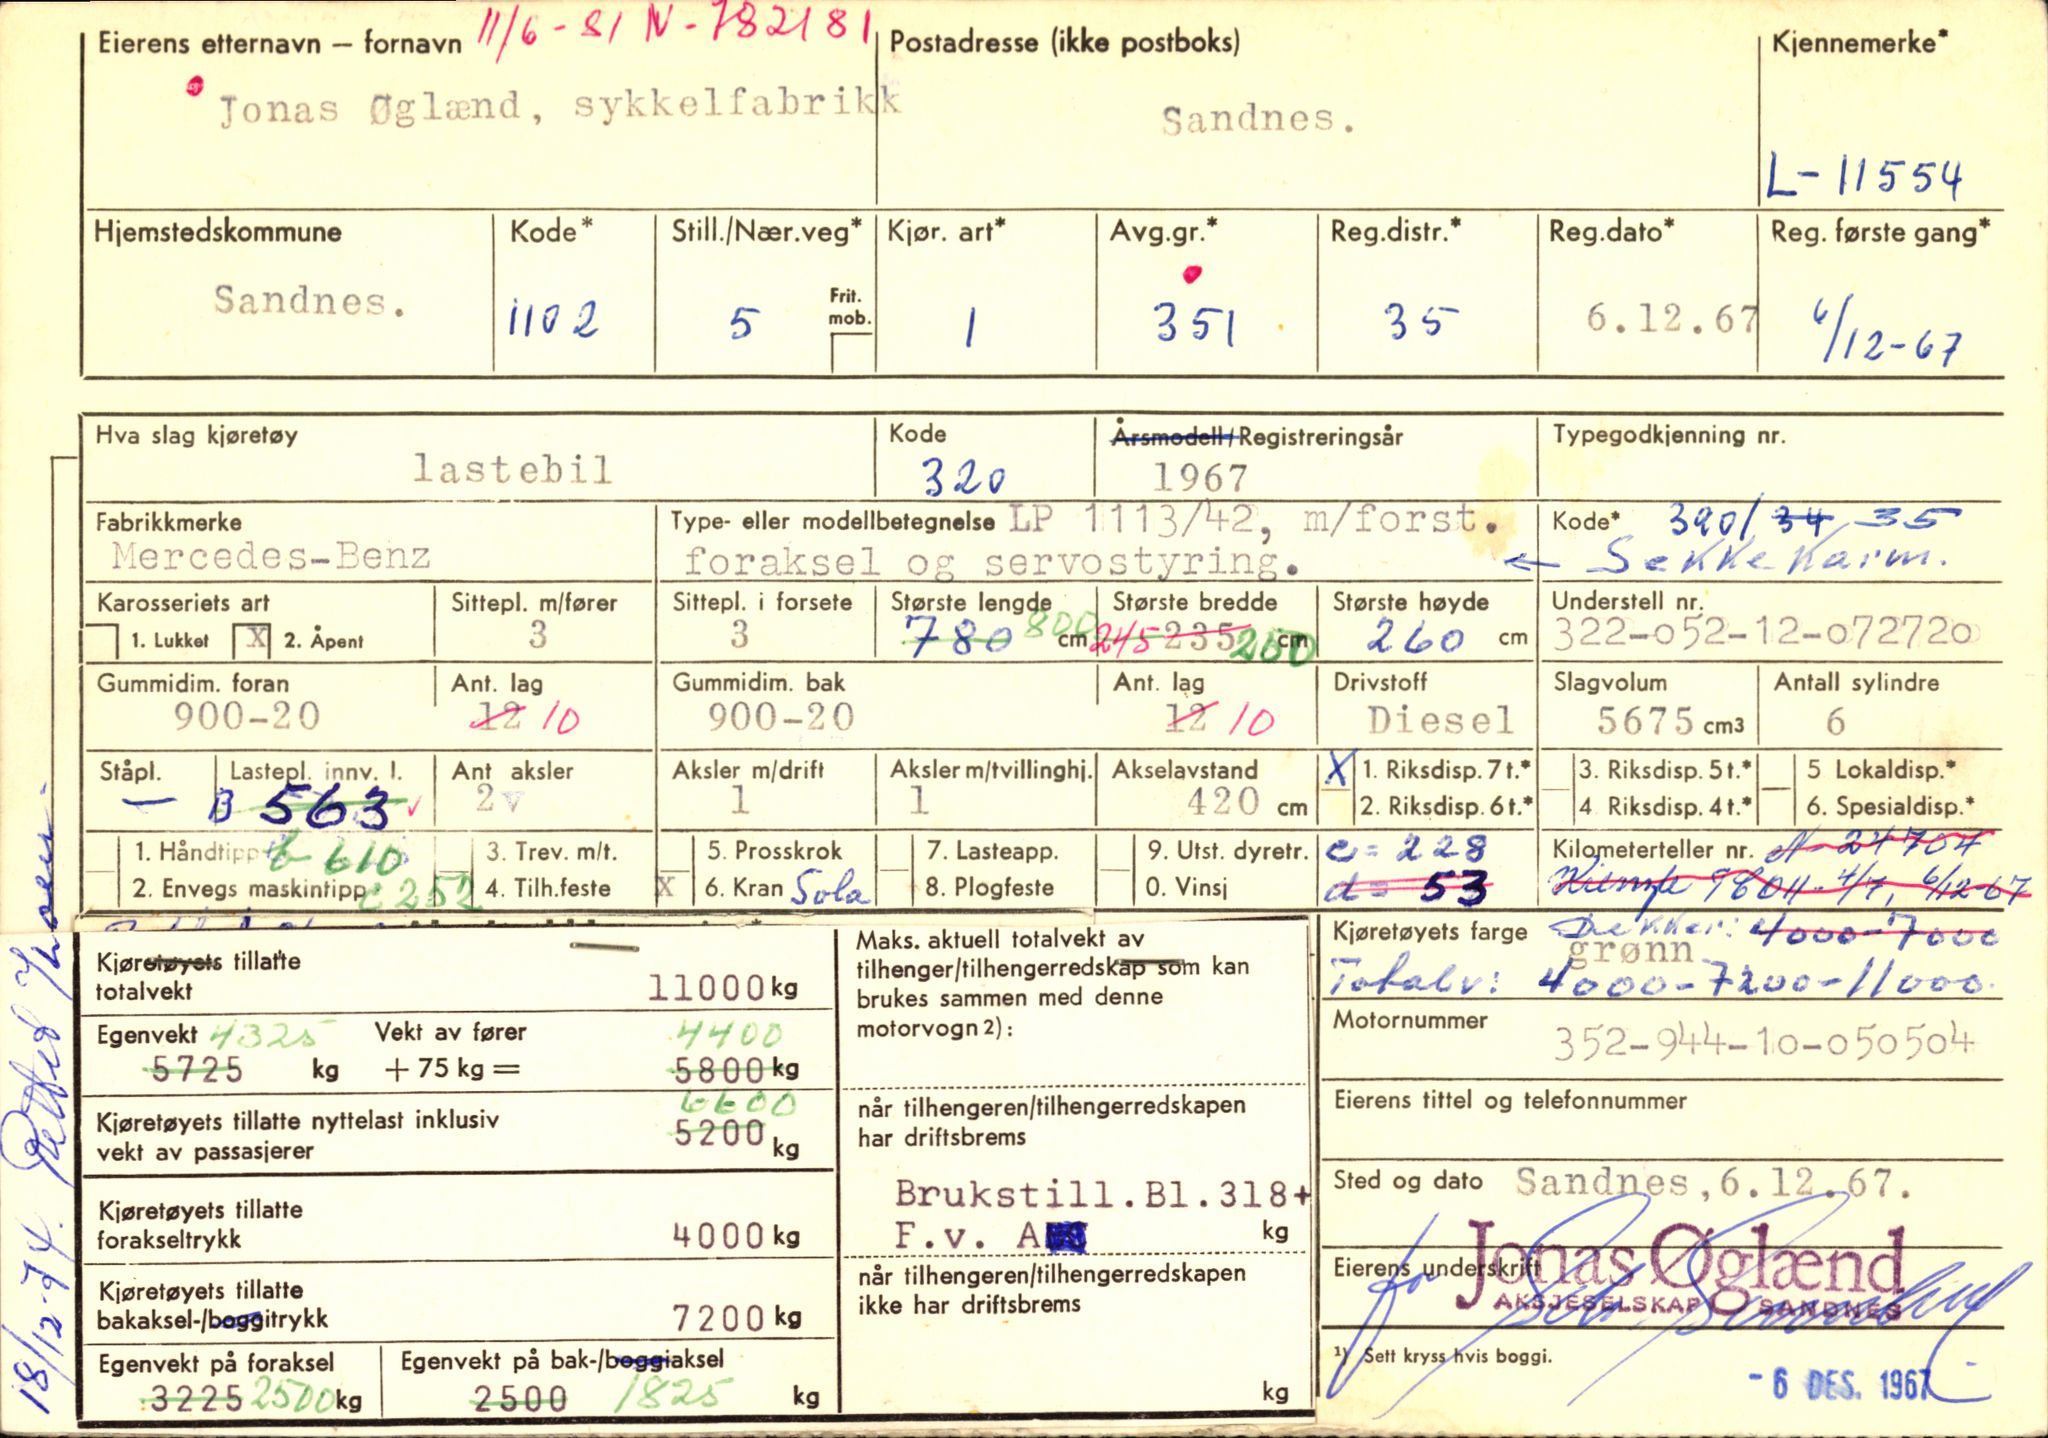 11/6-81 N-782181
Eierens etternavn – fornavn
Jonas Øglænd, sykkelfabrikk
Postadresse (ikke postboks)
Sandnes.
Kjennemerke*
L-11554
Hjemstedskommune
Sandnes.
Kode*
1102
Still./Nær.veg*
5
Frit. mob.
Kjør. art*
1
Avg.gr.*
351
Reg.distr.*
35
Reg.dato*
6.12.67
Reg. første gang*
6/12-67
Hva slag kjøretøy
lastebil
Kode
320
Årsmodell/Registreringsår
1967
Typegodkjenning nr.
Fabrikkmerke
Mercedes-Benz
Type- eller modellbetegnelse LP 1113/42, m/forst.
foraksel og servostyring.
Kode* 390/34 35
← Sekkekarm.
Karosseriets art
1. Lukket X 2. Åpent
Sittepl. m/fører
3
Sittepl. i forsete
3
Største lengde
780 800 cm
Største bredde
245 235 250 cm
Største høyde
260 cm
Understell nr.
322-052-12-072720
Gummidim. foran
900-20
Ant. lag
12 10
Gummidim. bak
900-20
Ant. lag
12 10
Drivstoff
Diesel
Slagvolum
5675 cm3
Antall sylindre
6
Ståpl.
—
Lastepl. innv. l.
B 563
Ant aksler
2
Aksler m/drift
1
Aksler m/tvillinghj.
1
Akselavstand
420 cm
X 1. Riksdisp. 7 t.*
2. Riksdisp. 6 t.*
3. Riksdisp. 5 t.*
4. Riksdisp. 4 t.*
5 Lokaldisp.*
6. Spesialdisp.*
1. Håndtipp b 610
2. Envegs maskintipp c 252
3. Trev. m/t.
4. Tilh.feste
5. Prosskrok
X 6. Kran Sola
7. Lasteapp.
8. Plogfeste
9. Utst. dyretr.
0. Vinsj
c = 228
d = 53
Kilometerteller nr. N-24704
Kienzle 9601 - 4/7, 6/12-67
Kjøretøyets farge Dekker: 4000-7000
grønn
Totalv: 4000-7200-11000.
Kjøretøyets tillatte
totalvekt 11000 kg
Egenvekt 4325
5725 kg
Vekt av fører 4400
+ 75 kg = 5800 kg
Kjøretøyets tillatte nyttelast inklusiv
vekt av passasjerer 6600 5200 kg
Kjøretøyets tillatte
forakseltrykk 4000 kg
Kjøretøyets tillatte
bakaksel-/boggitrykk 7200 kg
Egenvekt på foraksel
3225 2500 kg
Egenvekt på bak-/boggiaksel
2500 1825 kg
Maks. aktuell totalvekt av
tilhenger/tilhengerredskap som kan
brukes sammen med denne
motorvogn 2):
når tilhengeren/tilhengerredskapen
har driftsbrems
Brukstill.Bl.318+
F.v. A kg
når tilhengeren/tilhengerredskapen
ikke har driftsbrems
kg
Motornummer
352-944-10-050504
Eierens tittel og telefonnummer
Sted og dato Sandnes,6.12.67.
Eierens underskrift
Jonas Øglænd
AKSJESELSKAP SANDNES
1) Sett kryss hvis boggi.
- 6 DES. 1967
18/12-74. Rettet